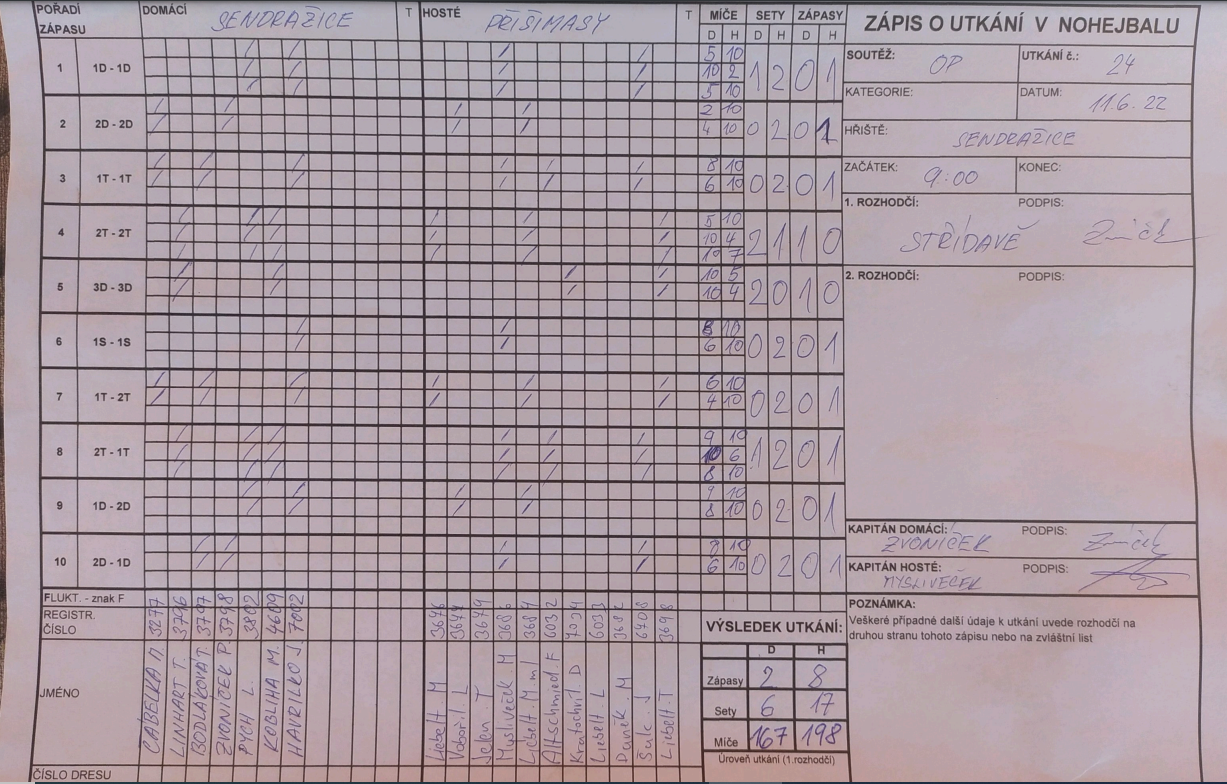 POŘADÍ ZÁPASU DOMÁCÍ SENDRAŽICE T HOSTÉ PŘIŠIMASY T MÍČE SETY ZÁPASY
D H D H D H
1 1D - 1D 5 10 1 2 0 1
10 2
5 10
2 2D - 2D 2 10 0 2 0 1
4 10
3 1T - 1T 8 10 0 2 0 1
6 10
4 2T - 2T 5 10 2 1 1 0
10 4
10 7
5 3D - 3D 10 5 2 0 1 0
10 4
6 1S - 1S 8 10 0 2 0 1
6 10
7 1T - 2T 6 10 0 2 0 1
4 10
8 2T - 1T 9 10 1 2 0 1
10 6
8 10
9 1D - 2D 9 10 0 2 0 1
8 10
10 2D - 1D 8 10 0 2 0 1
6 10
FLUKT. - znak F
REGISTR. ČÍSLO 3277 3796 3797 3798 3802 4609 7002 3676 3677 3679 3684 6032 6033 6708 3698
JMÉNO
LINHART T.
ZVONÍČEK P.
PYCH L.
KOBLIHA M.
HAVRILKO J
Liebelt M
Vobořil L
Jelen T
Mysliveček M
Liebelt M ml
Altschmied F
Kratochvíl D
Liebelt L
Daněk M
Šulc J
Liebelt T
ČÍSLO DRESU
VÝSLEDEK UTKÁNÍ:
D H
Zápasy 2 8
Sety 6 17
Míče 167 198
Úroveň utkání (1.rozhodčí)
ZÁPIS O UTKÁNÍ V NOHEJBALU
SOUTĚŽ: OP UTKÁNÍ č.: 24
KATEGORIE: DATUM: 11.6.22
HŘIŠTĚ: SENDRAŽICE
ZAČÁTEK: 9:00 KONEC:
1. ROZHODČÍ: PODPIS:
STŘÍDAVĚ
2. ROZHODČÍ: PODPIS:
KAPITÁN DOMÁCÍ: PODPIS:
ZVONÍČEK
KAPITÁN HOSTÉ: PODPIS:
MYSLIVEČEK
POZNÁMKA:
Veškeré případné další údaje k utkání uvede rozhodčí na
druhou stranu tohoto zápisu nebo na zvláštní list